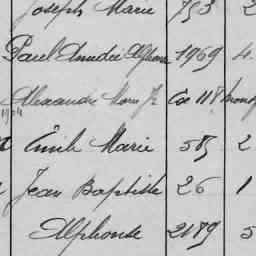 Joseph Marie 793 2
Paul Amédée Alphonse 1969 4
Alexandre Marie Je Ca 118
1904
Emile Marie 585 2
Jean Baptiste 26 1
Alphonse 2189 5